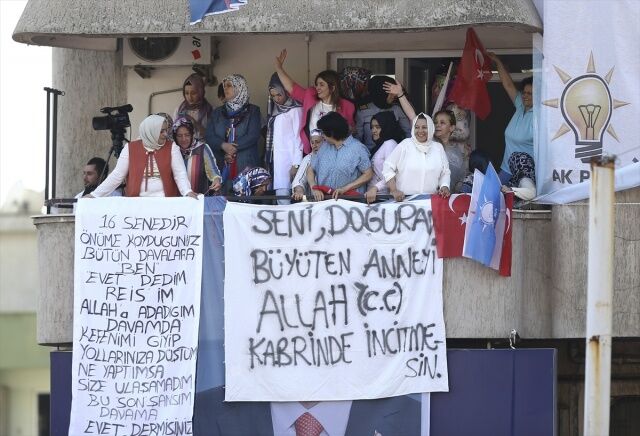 16 SENEDİR
ÖNÜME KOYDUGUNUZ
BÜTÜN DAVALARA
BEN
EVET DEDİM
REİS İM
ALLAH'a ADADIGIM
DAVAMDA
KEFENİMİ GİYİP
YOLLARINIZA DÜSTÜM
NE YAPTIMSA
SİZE ULASAMADIM
BU SON SANSIM
DAVAMA
EVET DERMİSİNİZ
SENİ, DOĞURAN
BÜYÜTEN ANNEYİ
ALLAH (C.C)
KABRİNDE İNCİTME-
SİN.
AK PA